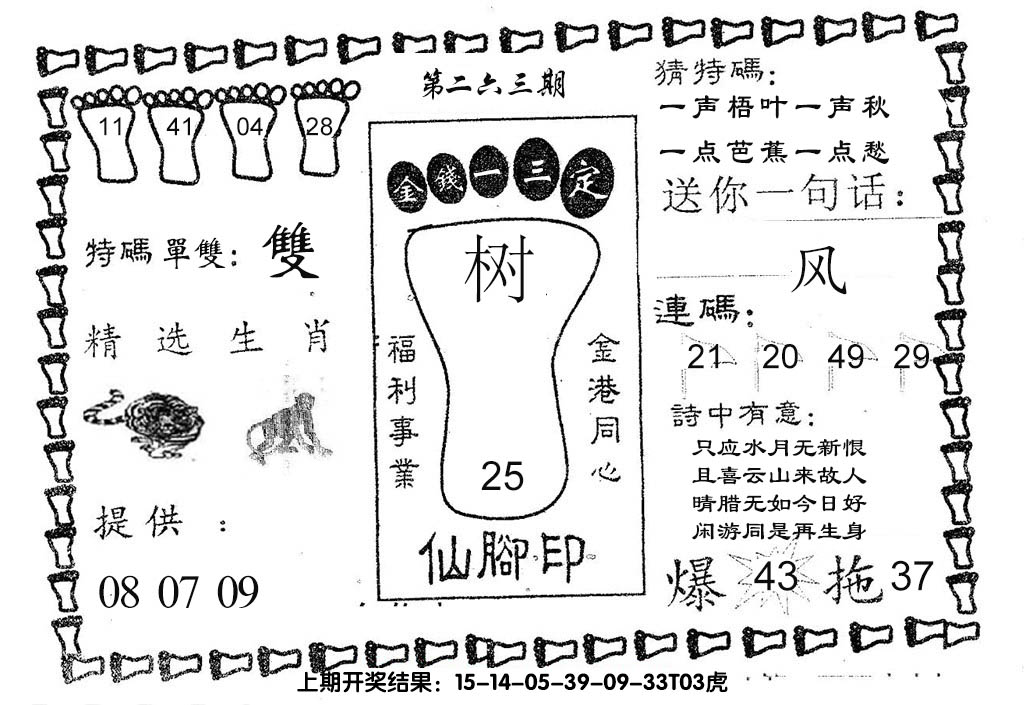 第二六三期
11 41 04 28
特碼單雙：雙
精选生肖
提供：
08 07 09
金錢一三定
树
福利事業
金港同心
25
仙腳印
猜特碼：
一声梧叶一声秋
一点芭蕉一点愁
送你一句话：
风
連碼：
21 20 49 29
詩中有意：
只应水月无新恨
且喜云山来故人
晴腊无如今日好
闲游同是再生身
爆 43 拖 37
上期开奖结果：15-14-05-39-09-33T03虎